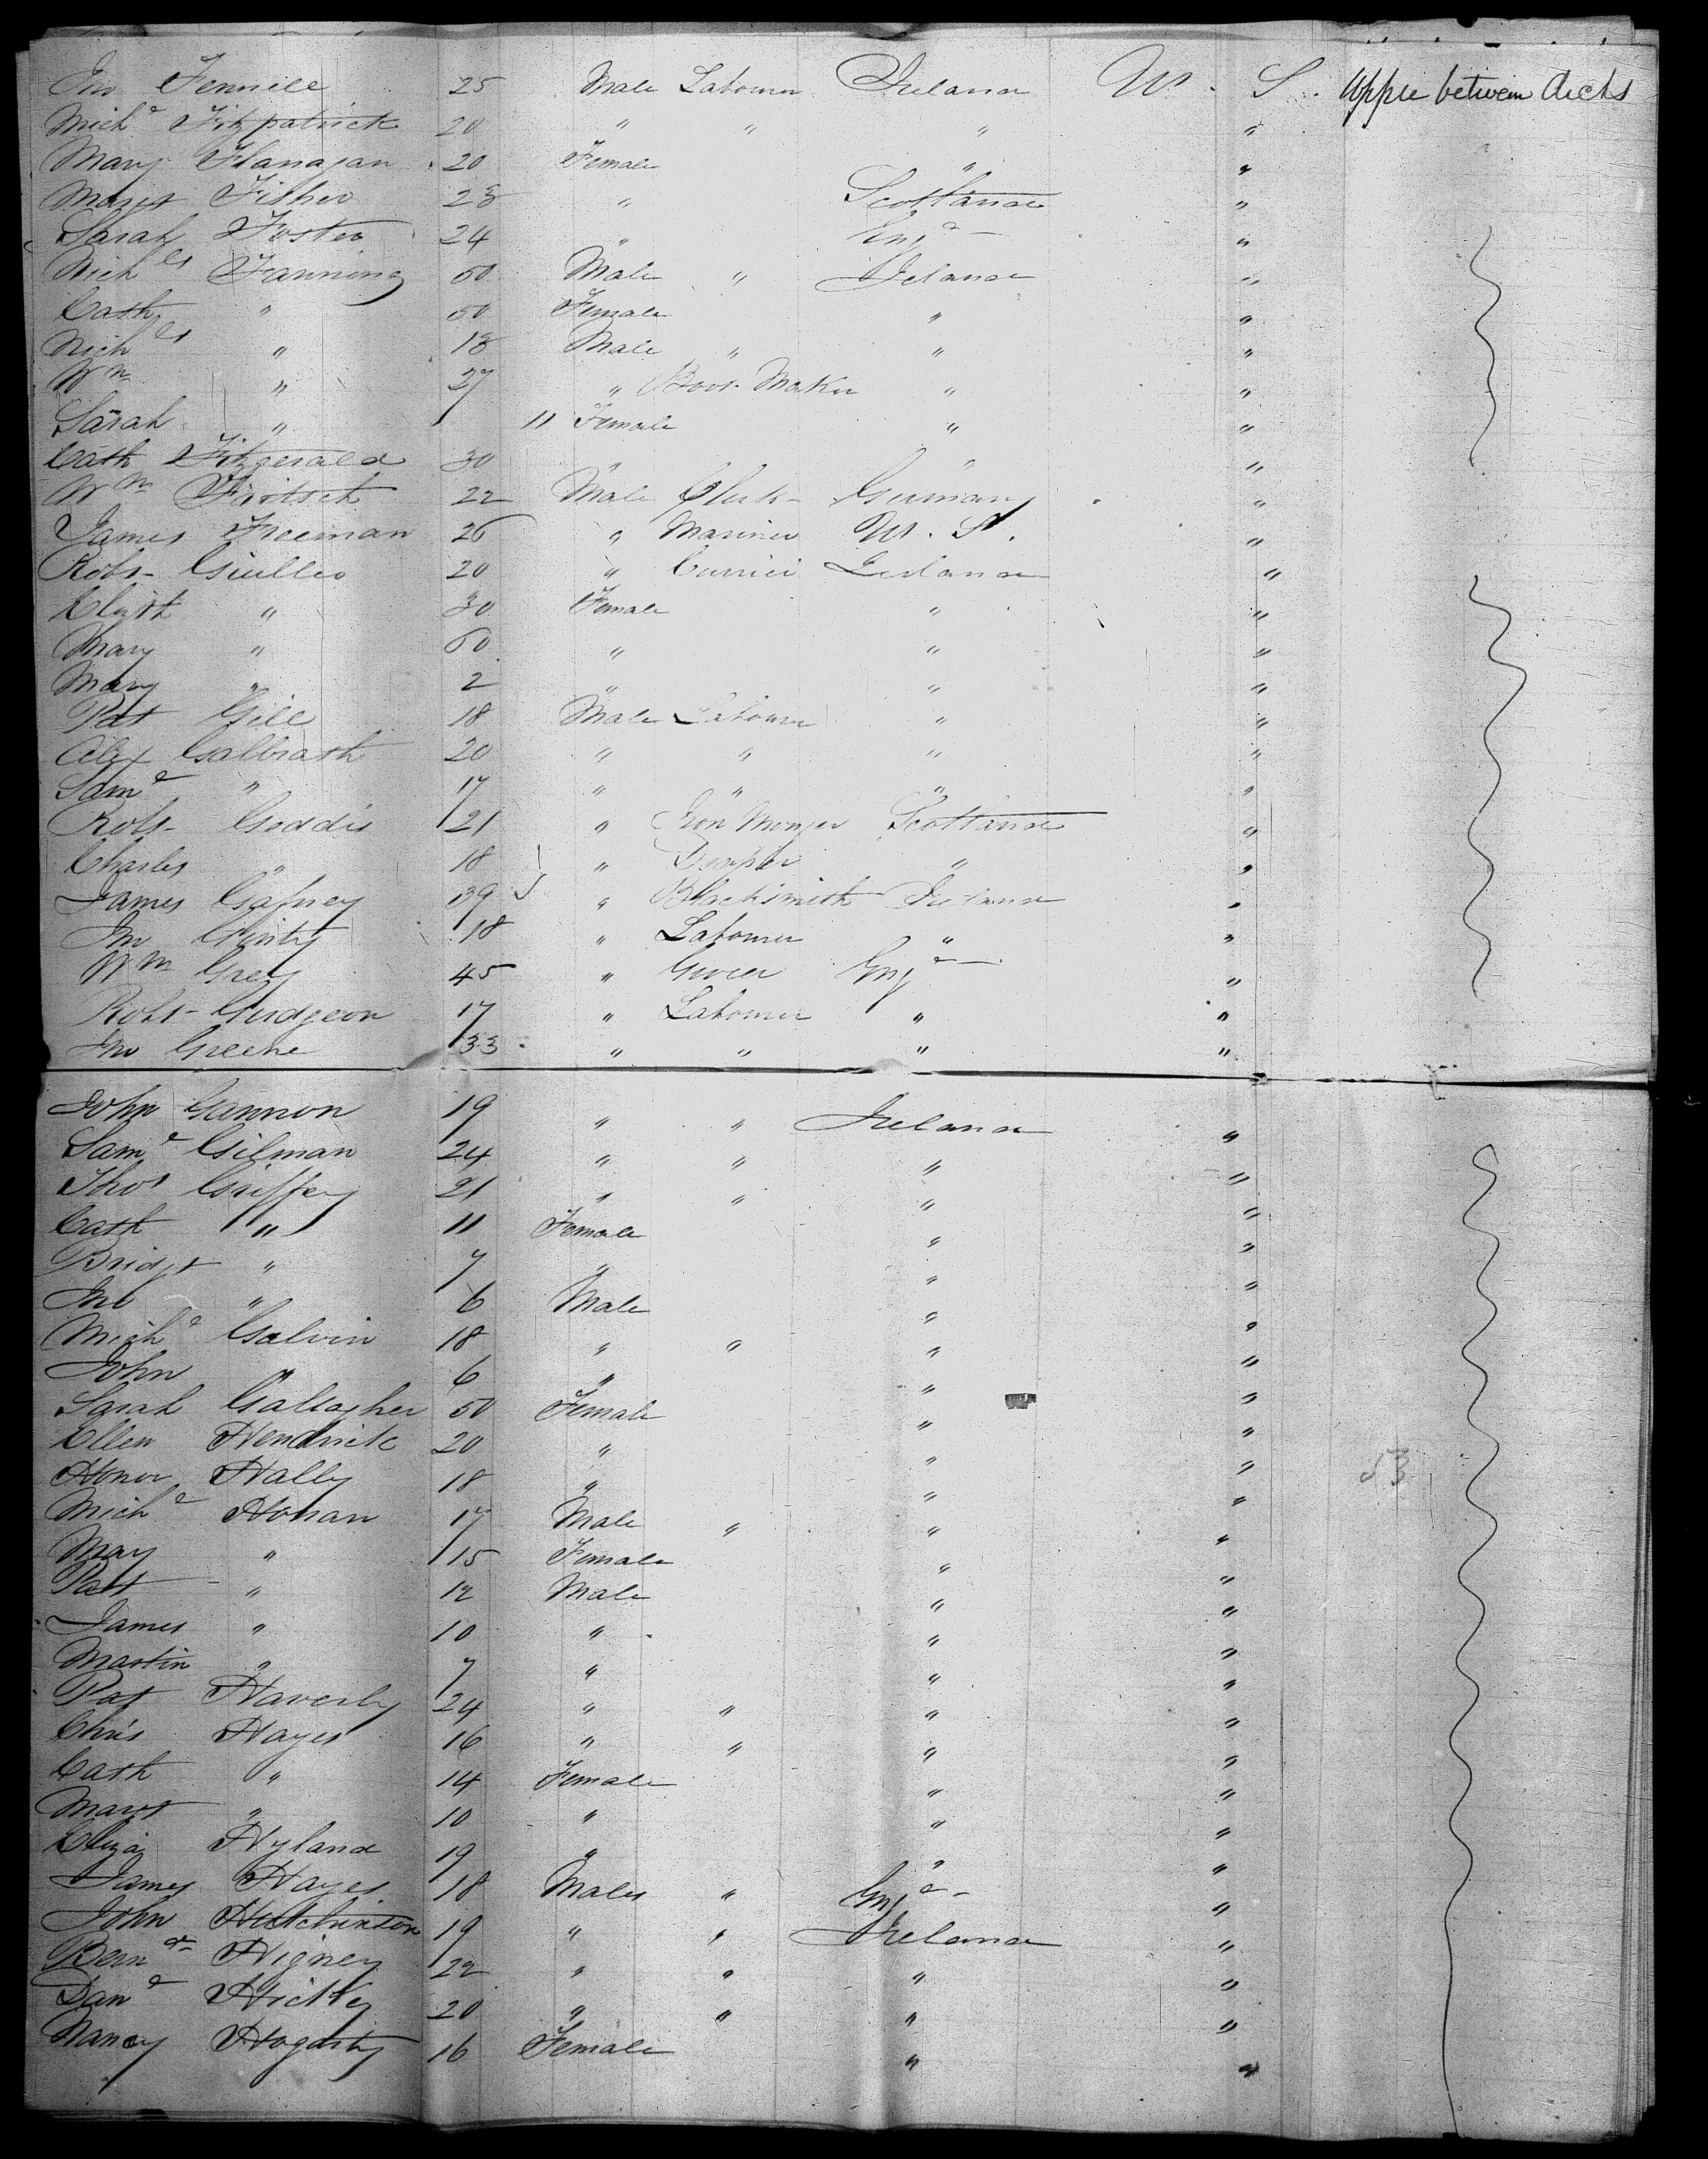 Jno Fennell 25 Male Labourer Ireland U. S. Upper between decks
Michl Fitzpatrick 20 " " " "
Mary Flanagan 20 Female " "
Margt Fisher 23 " Scotland "
Sarah Foster 24 " Engd "
Nichls Fanning 50 Male " Ireland "
Cath " 50 Female " "
Nichls " 18 Male " " "
Wm " 27 " Boot Maker " "
Sarah " 11 Female " "
Cath Fitzgerald 30 " " "
Wm 22 Male Clerk Germany "
James Freeman 26 " Mariner U. S. "
Robt 20 " Currier Ireland "
Elizth " 30 Female " "
Mary " 60 " " "
Mary " 2 " " "
Pat Gill 18 Male Labourer " "
Alex Galbrath 20 " " " "
Saml " 17 " " " "
Robt Geddis 21 " Iron Monger Scotland "
Charles " 18 " Draper " "
James Gafney 39 " Blacksmith Ireland "
Jno Ginty 18 " Labourer " "
Wm Grey 45 " Grocer Engd "
Robt Gudgeon 17 " Labourer " "
Jno Greene 33 " " " "
John Gannon 19 " " Ireland "
Saml Gilman 24 " " " "
Thos Griffey 21 " " " "
Cath " 11 Female " "
Bridgt " 7 " " "
Jno " 6 Male " "
Michl Galvin 18 " " " "
John " 6 " " "
Sarah Gallagher 50 Female " "
Ellen Hendrick 20 " " "
Honor Hally 18 " " " 53
Michl Honan 17 Male " " "
May " 15 Female " "
Patt " 12 Male " "
James " 10 " " "
Martin " 7 " " "
Pat Haverly 24 " " " "
Chris Hayes 16 " " " "
Cath " 14 Female " "
Margt " 10 " " "
Eliza Hyland 19 " " "
James Hayes 18 Males " Engd "
John Hutchinson 19 " " Ireland "
Bernd Higney 22 " " " "
Danl Hickey 20 " " " "
Nancy Hogarty 16 Female " "